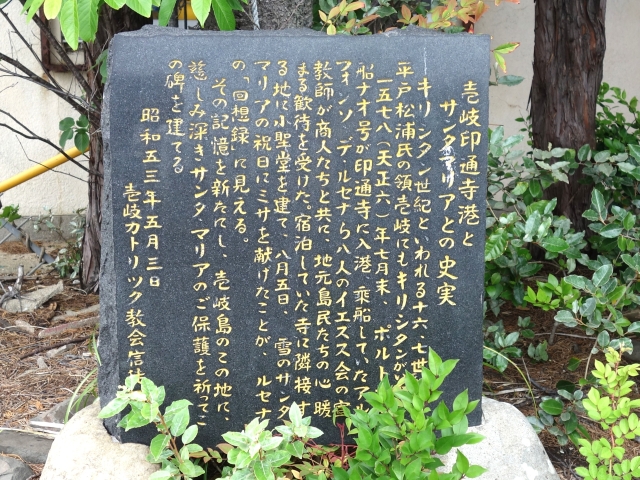 壱岐印通寺港と
サンタ マリアとの史実
キリシタン世紀といわれる十六、七世
平戸松浦氏の領壱岐にもキリシタンが
一五七八（天正六）年七月末、ポルト
船ナオ号が印通寺に入港、乗船していたアル
フォンソ デ・ルセナら八人のイエズス会の宣
教師が商人たちと共に、地元島民たちの心暖
まる歓待を受けた。宿泊していた寺に隣接す
る地に小聖堂を建て、八月五日、雪のサンタ
マリアの祝日にミサを献げたことが、ルセナ
の「回想録」に見える。
その記憶を新たにし、壱岐島のこの地に、
慈しみ深きサンタ マリアのご保護を祈ってこ
の碑を建てる
昭和五三年五月三日
壱岐カトリック教会信徒